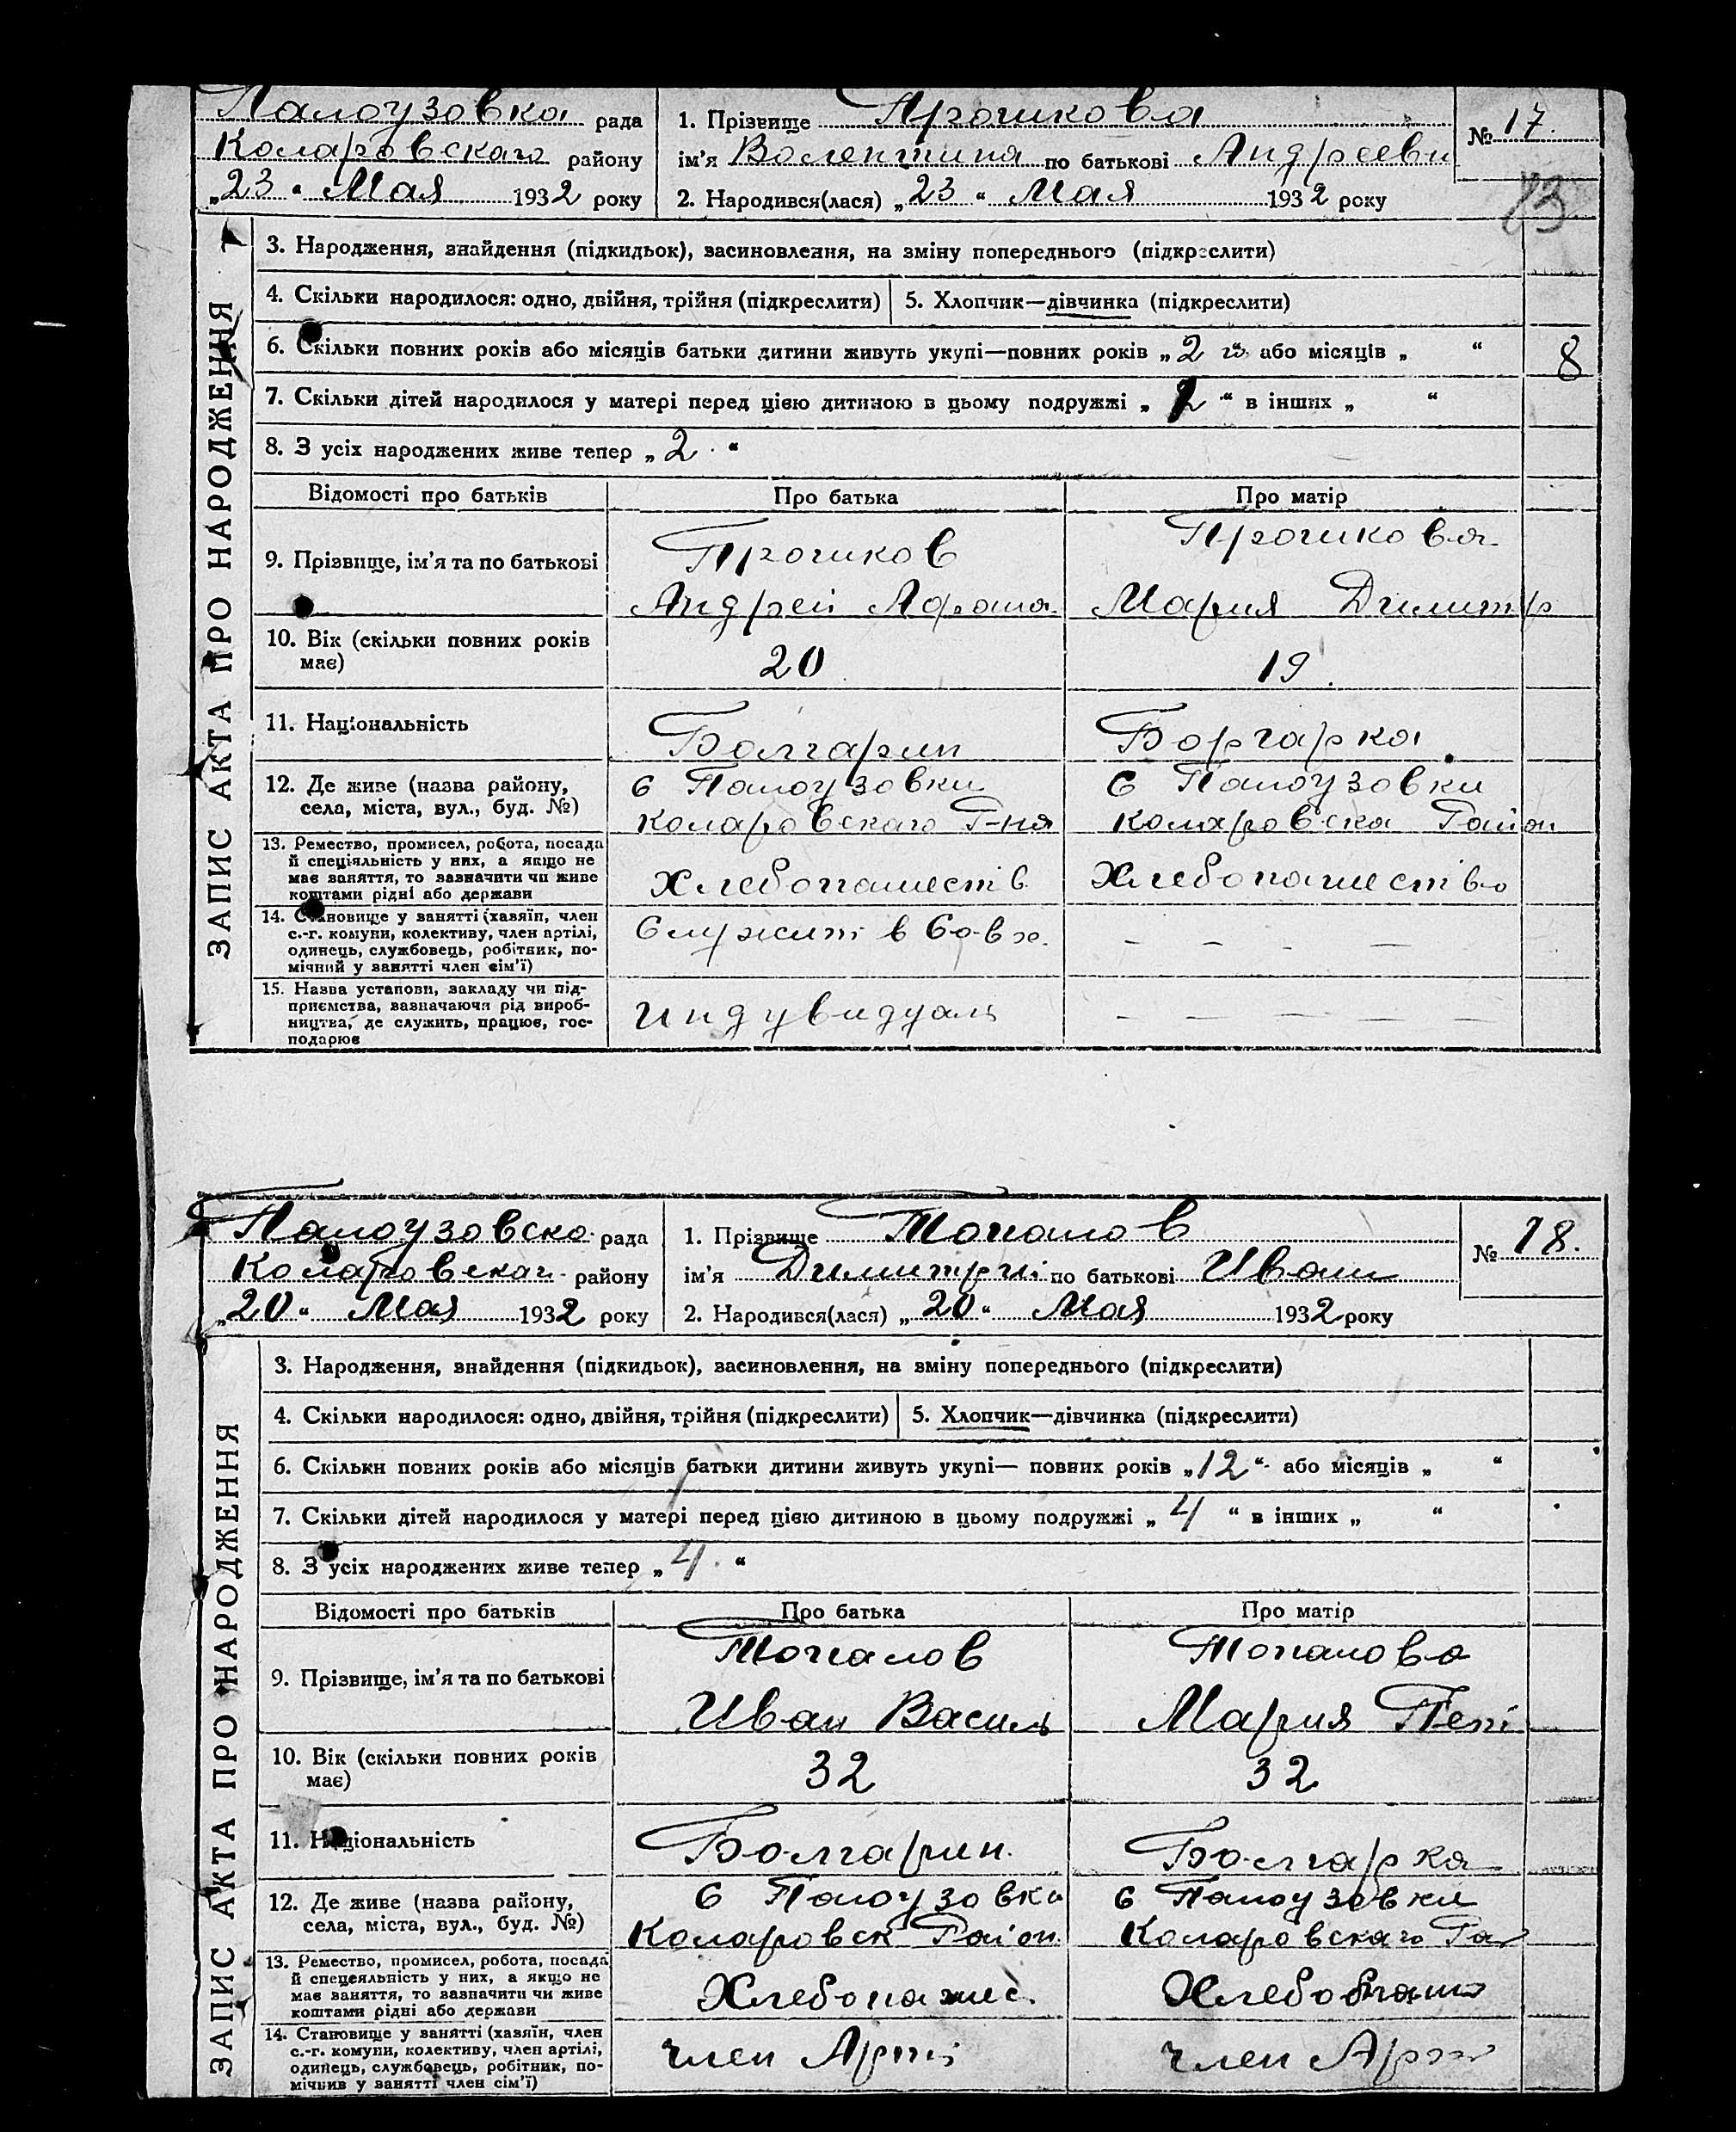 Палоузовка рада
Коларовскаго району
„23“ Мая 1932 року
1. Прізвище Прошкова
ім’я Волентина по батькові Андреевн
2. Народився(лася) „23“ Мая 1932 року
№ 17.
ЗАПИС АКТА ПРО НАРОДЖЕННЯ
3. Народження, знайдення (підкидьок), засиновлення, на зміну попереднього (підкреслити)
4. Скільки народилося: одно, двійня, трійня (підкреслити) 5. Хлопчик—дівчинка (підкреслити)
6. Скільки повних років або місяців батьки дитини живуть укупі—повних років „2 го або місяців „ “ 8
7. Скільки дітей народилося у матері перед цією дитиною в цьому подружжі „ “ в інших „ “
8. З усіх народжених живе тепер „2.“
Відомості про батьків Про батька Про матір
9. Прізвище, ім’я та по батькові
Прошков
Андрей Афана
Прошковя
Мария Димитр
10. Вік (скільки повних років має)
20
19.
11. Національність
Болгарин
Боргарка
12. Де живе (назва району,
села, міста, вул., буд. №)
С Палоузовки
Коларовскаго Р-ня
С Палоузовки
Коларовска Район
13. Ремество, промисел, робота, посада
й спеціяльність у них, а якщо не
має заняття, то зазначити чи живе
коштами рідні або держави
Хлебопашеств
Хлебопашество
14. Становище у занятті (хазяїн, член
с.-г. комуни, колективу, член артілі,
одинець, службовець, робітник, по-
мічний у занятті член сім’ї)
Служит в
– – – –
15. Назва установи, закладу чи під-
приємства, зазначаючи рід вироб-
ництва, де служить, працює, гос-
подарює
Индувидуаль
– – – – –
Палоузовско рада
Коларовскаг району
„20“ Мая 1932 року
1. Прізвище Топалов
ім’я Димитрий по батькові Иван
2. Народився(лася) „20“ Мая 1932 року
№ 18.
ЗАПИС АКТА ПРО НАРОДЖЕННЯ
3. Народження, знайдення (підкидьок), засиновлення, на зміну попереднього (підкреслити)
4. Скільки народилося: одно, двійня, трійня (підкреслити) 5. Хлопчик—дівчинка (підкреслити)
6. Скільки повних років або місяців батьки дитини живуть укупі— повних років „12“ або місяців „ “
7. Скільки дітей народилося у матері перед цією дитиною в цьому подружжі „ 4 “ в інших „ “
8. З усіх народжених живе тепер „4.“
Відомості про батьків Про батька Про матір
9. Прізвище, ім’я та по батькові
Топалов
Иван Василь
Топалова
Мария Пет
10. Вік (скільки повних років має)
32
32
11. Національність
Болгарин.
Болгарка
12. Де живе (назва району,
села, міста, вул., буд. №)
С Палоузовка
Коларовск Район
С Палоузовки
Коларовскаго Ра
13. Ремество, промисел, робота, посада
й спецеяльність у них, а якщо не
має заняття, то зазначити чи живе
коштами рідні або держави
Хлебопашес.
14. Становище у занятті (хазяїн, член
с.-г. комуни, колективу, член артілі,
одинець, службовець, робітник, по-
мічнив у занятті член сім’ї)
член Арті
член Арт